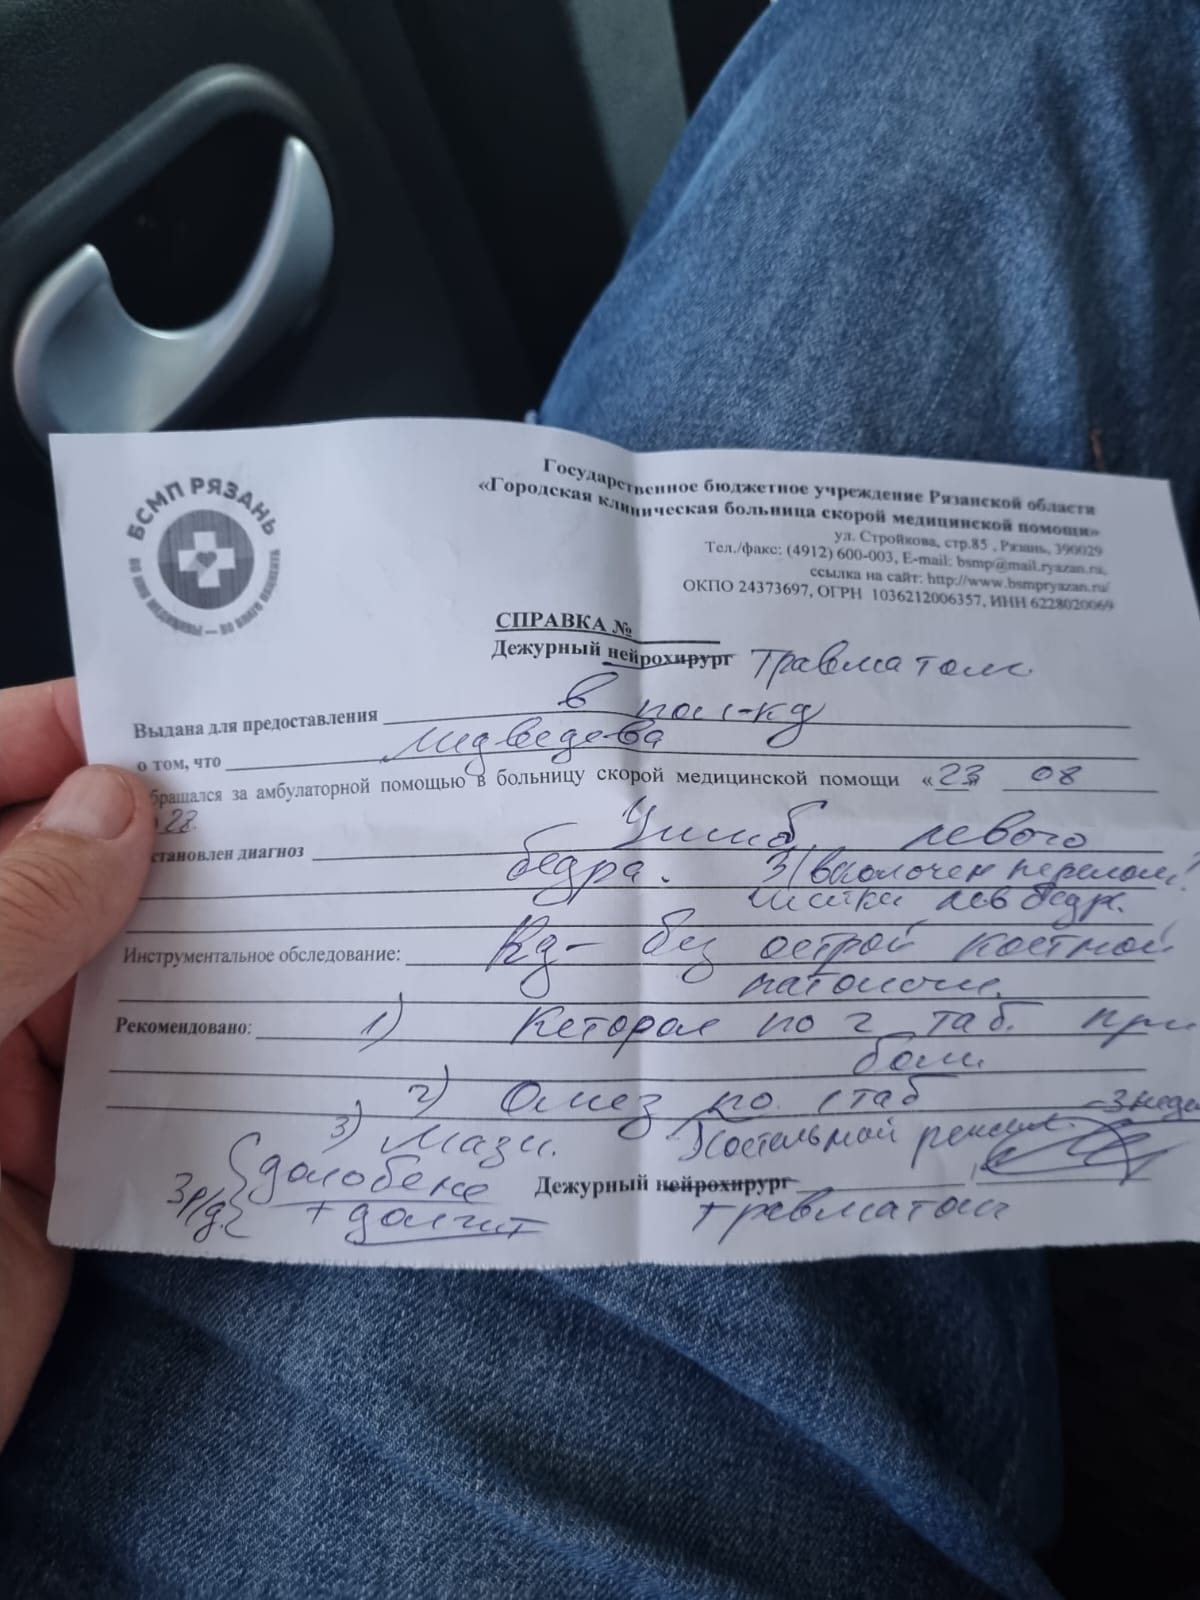 БСМП РЯЗАНЬ
Государственное бюджетное учреждение Рязанской области
«Городская клиническая больница скорой медицинской помощи»
ул. Стройкова, стр.85 , Рязань, 390029
Тел./факс: (4912) 600-003, E-mail: bsmp@mail.ryazan.ru,
ссылка на сайт: http://www.bsmpryazan.ru/
ОКПО 24373697, ОГРН 1036212006357, ИНН 6228020069
СПРАВКА №
Дежурный нейрохирург Травматолог
Выдана для предоставления в пол-ку
о том, что Медведева
бращался за амбулаторной помощью в больницу скорой медицинской помощи «23» 08
становлен диагноз Ушиб левого
бедра. З/ вколочен перелом?
шейки лев бедр.
Инструментальное обследование: Rg- без острой костной
патологии.
Рекомендовано: 1) Кеторол по 1 таб. при
боли.
2) Омез по 1 таб
3) Мази. Постельный режим. -3 неде
3 р/д. долобене
Дежурный нейрохирург
+ долгит травматолог